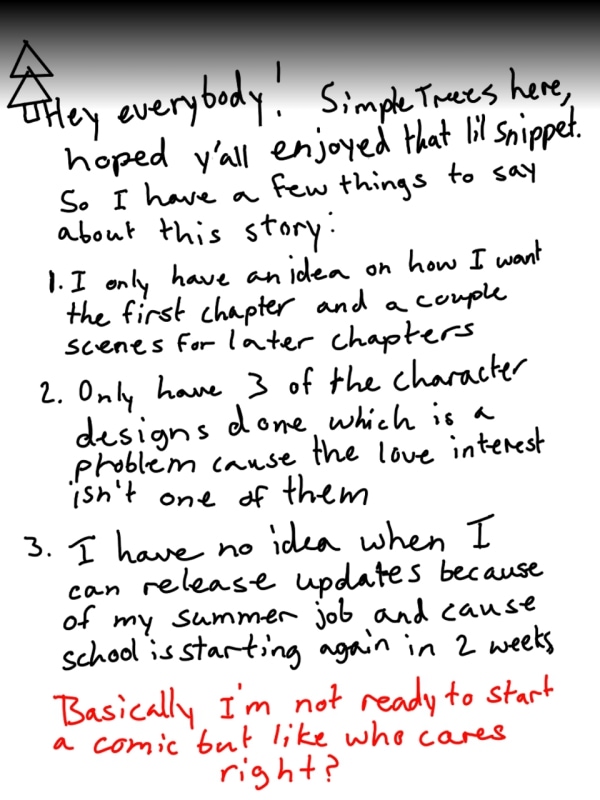 Hey everybody! Simple Trees here,
hoped y'all enjoyed that lil snippet.
So I have a few things to say
about this story:
1. I only have an idea on how I want
the first chapter and a couple
scenes for later chapters
2. Only have 3 of the character
designs done which is a
problem cause the love interest
isn't one of them
3. I have no idea when I
can release updates because
of my summer job and cause
school is starting again in 2 weeks
Basically I'm not ready to start
a comic but like who cares
right?